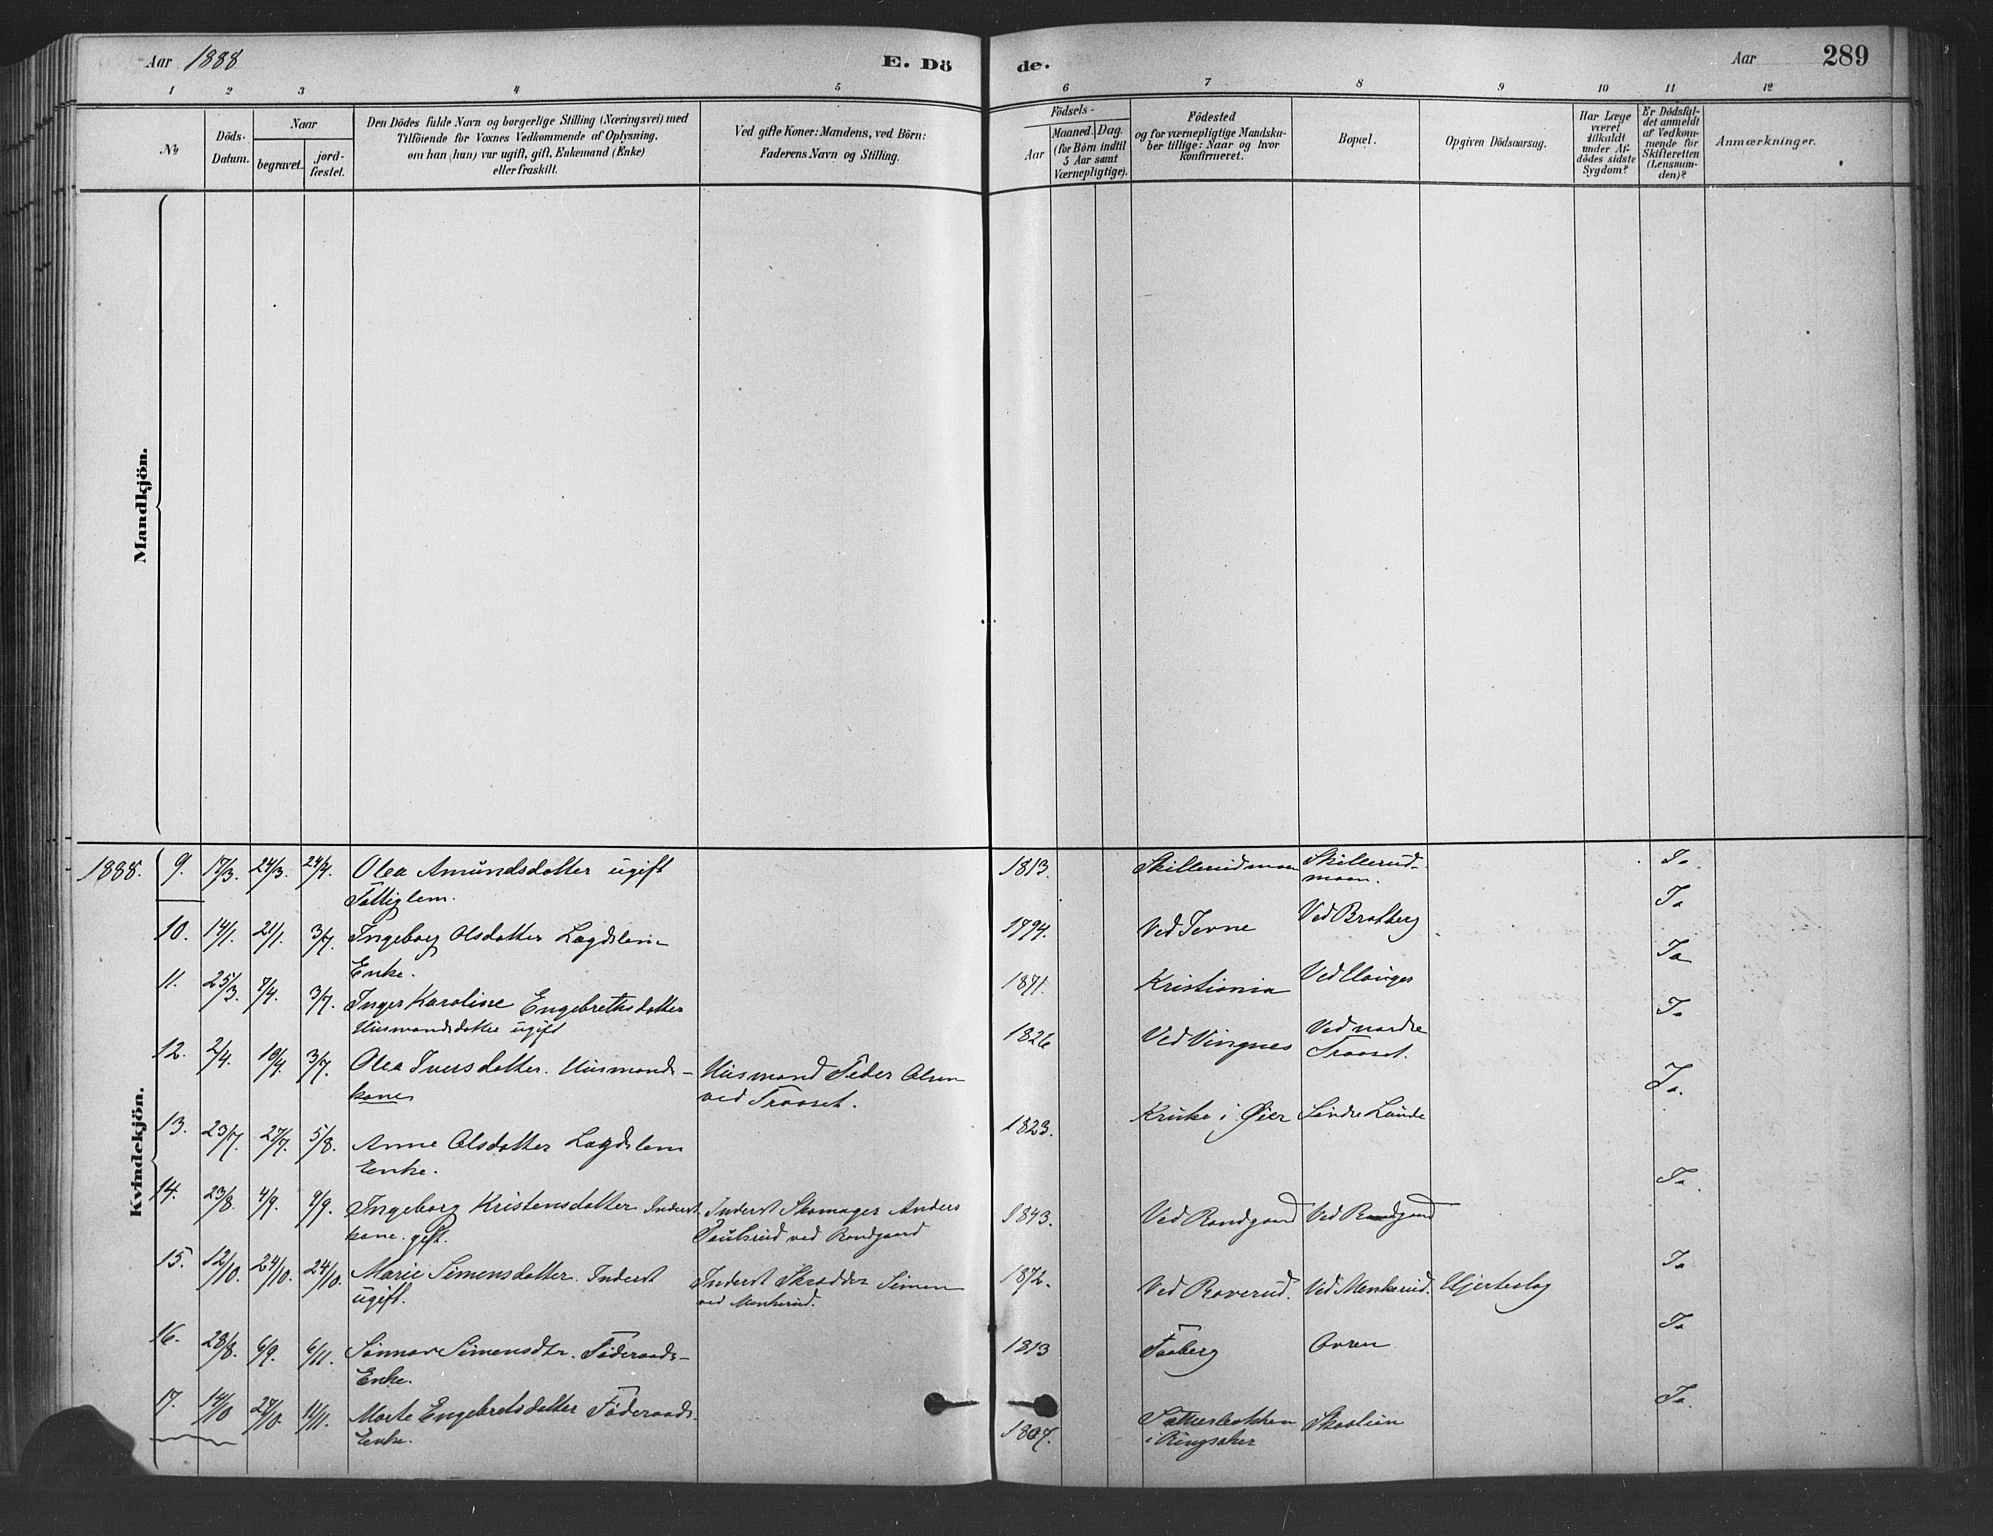 Aar 1888
E. Dö
de.
Aar
289
1 2 3 4 5 6 7 8 9 10 11 12
No
Döds-
Datum.
Naar
begravet.
jord-
fæstet.
Den Dödes fulde Navn og borgerlige Stilling (Næringsvei) med
Tilföiende for Voxnes Vedkommende af Oplysning,
om han (hun) var ugift, gift, Enkemand (Enke)
eller fraskilt.
Ved gifte Koner: Mandens, ved Börn:
Faderens Navn og Stilling.
Födsels-
Aar
Maaned. Dag.
(for Börn indtil
5 Aar samt
Værnepligtige).
Födested
og for værnepligtige Mandska-
ber tillige: Naar og hvor
konfirmeret.
Bopæl.
Opgiven Dödsaarsag.
Har Læge
været
tilkaldt
under Af-
dödes sidste
Sygdom?
Er Dödsfal-
det anmeldt
af Vedkom-
mende for
Skifteretten
(Lensman-
den)?
Anmærkninger.
Mandkjön.
Kvindekjön.
1888. 9. 17/3. 24/3. 24/4. Olea Amundsdatter ugift 1813. Skillerudmoen Skillerud- Ja
Fattiglem. moen.
10. 14/1. 21/1. 3/7. Ingeborg Olsdatter Lægdslem 1794. Ved Terne Ved Bratberg Ja
Enke.
11. 25/3. 7/4. 3/7. Inger Karoline Engebrethsdatter 1871. Kristiania Ja
Husmandsdatter ugift
12. 2/4. 10/4. 3/7. Olea Iversdatter. Husmands- Husmand Peder Olsen 1826 Ved Vingnes Ved nordre Ja
kone ved Traaset. Traaset.
13. 23/7. 27/7. 5/8. Anne Olsdatter Lægdslem 1823. Kruke i Øier Søndre Lunde Ja.
Enke.
14. 23/8. 4/9. 9/9. Ingeborg Kristensdatter Inderst Inderst Skomager Anders 1843. Ved Rondgaard Ved Rondgaard Ja
kone. gift. Paulsrud ved Rondgaard
15. 12/10. 24/10. 24/10. Marie Simensdatter. Inderst Inderst Skrædder Simen 1872. Ved Roverud. Ved Menkerud. Hjerteslag Ja
ugift. ved Menkerud.
16. 28/8. 6/9. 6/11. Simensdtr. Føderaads- 1813 Faaberg Ovren Ja
Enke.
17. 14/10 27/10. 11/11. Marte Engebretsdatter Føderaads- 1807. Skaalien Ja.
Enke. i Ringsaker